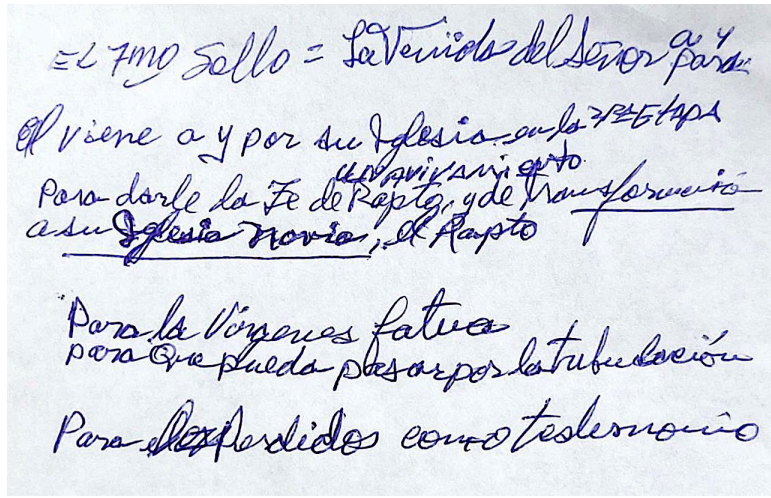 EL 7MO Sello = La Venida del Señor a y para
El viene a y por su Iglesia en la 3ra Etapa
un avivamiento
Para darle la Fe de Rapto, y de transformació
a su Iglesia Novia, el Rapto
Para la Vírgenes fatua
para que pueda pasar por la tribulación
Para los Perdidos como testimonio